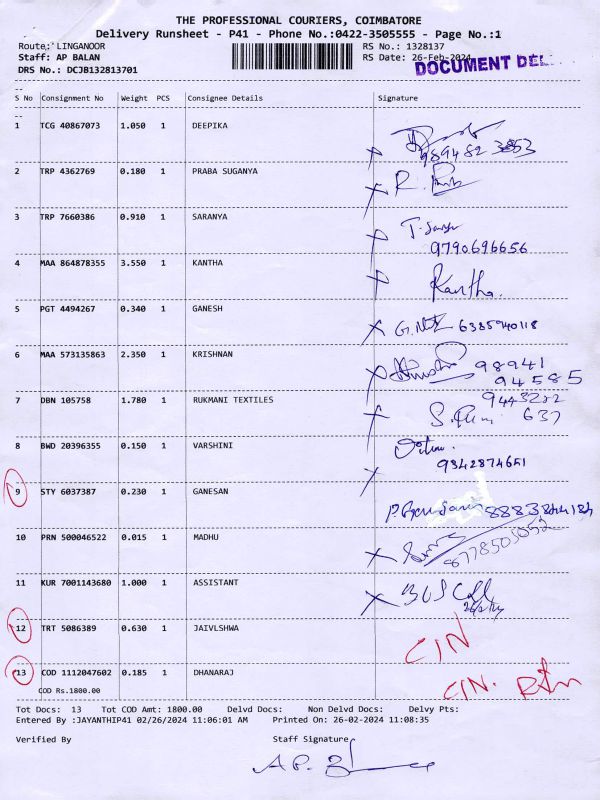 THE PROFESSIONAL COURIERS, COIMBATORE
Delivery Runsheet - P41 - Phone No.:0422-3505555 - Page No.:1
Route: LINGANOOR RS No.: 1328137
Staff: AP BALAN RS Date: 26-Feb-2024
DRS No.: DCJB132813701 DOCUMENT DEL
S No Consignment No Weight PCS Consignee Details Signature
1 TCG 40867073 1.050 1 DEEPIKA
2 TRP 4362769 0.180 1 PRABA SUGANYA
3 TRP 7660386 0.910 1 SARANYA
9790696656
4 MAA 864878355 3.550 1 KANTHA Kantha.
5 PGT 4494267 0.340 1 GANESH 6385940118
6 MAA 573135863 2.350 1 KRISHNAN 98941
94585
7 DBN 105758 1.780 1 RUKMANI TEXTILES
637
8 BWD 20396355 0.150 1 VARSHINI
9342874651
9 STY 6037387 0.230 1 GANESAN
10 PRN 500046522 0.015 1 MADHU 8778505052
11 KUR 7001143680 1.000 1 ASSISTANT
12 TRT 5086389 0.630 1 JAIVLSHWA CIN
13 COD 1112047602 0.185 1 DHANARAJ CIN.
COD Rs.1800.00
Tot Docs: 13 Tot COD Amt: 1800.00 Delvd Docs: Non Delvd Docs: Delvy Pts:
Entered By :JAYANTHIP41 02/26/2024 11:06:01 AM Printed On: 26-02-2024 11:08:35
Verified By Staff Signature